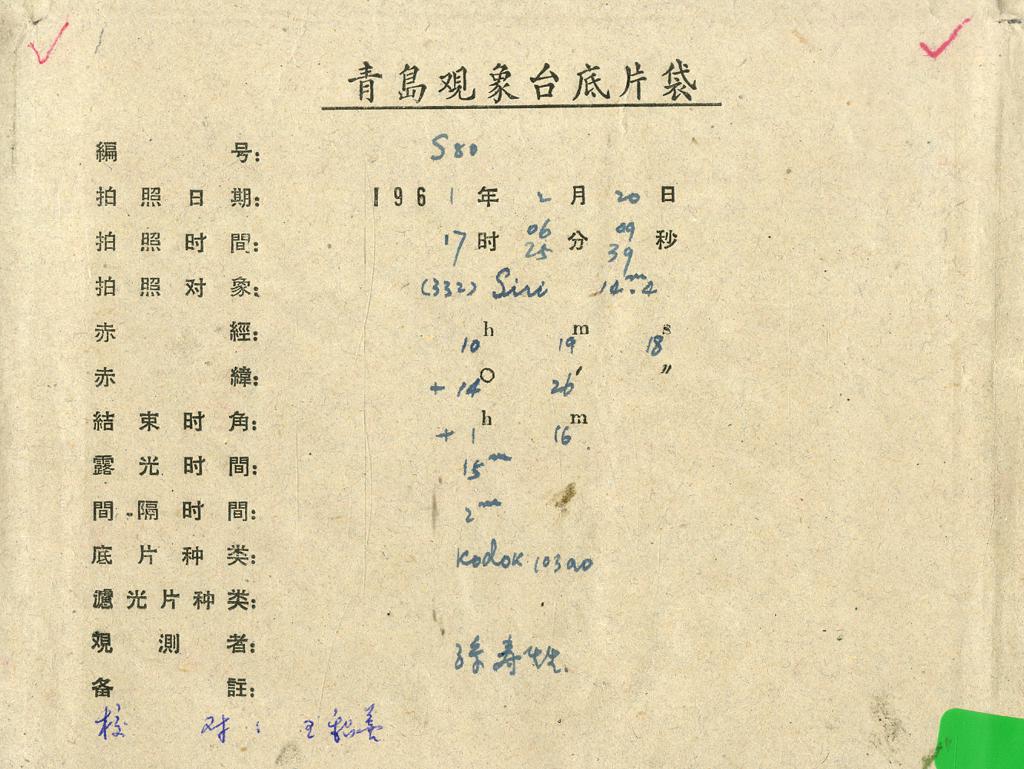 青島观象台底片袋
編号: S80
拍照日期: 1961年2月20日
拍照时間: 17时 06 分 09 秒
25 39
拍照对象: (332) Siri 14ᵐ.4
赤經: 10h 19m 18s
赤緯: +14° 26′ ″
結束时角: +1h 16m
露光时間: 15ᵐ
間隔时間: 2ᵐ
底片种类: Kodok 103aO
濾光片种类:
观測者: 孫寿
备註:
校对: 王